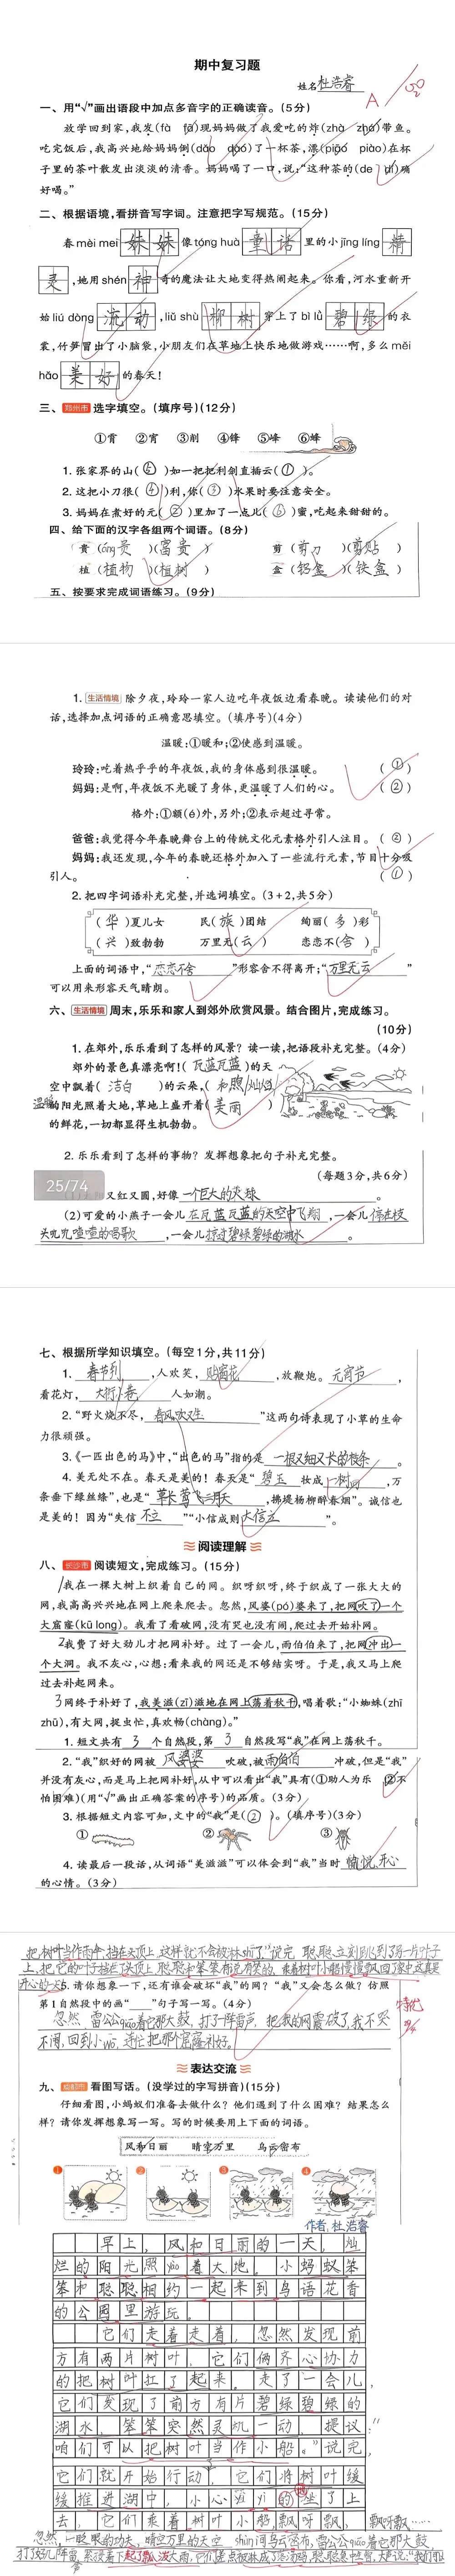 期中复习题
姓名 杜浩睿
A
一、用“√”画出语段中加点多音字的正确读音。(5分)
放学回到家,我发(fà fā)现妈妈做了我爱吃的炸(zhà zhá)带鱼。
吃完饭后,我高兴地给妈妈倒(dǎo dào)了一杯茶,漂(piāo piào)在杯
子里的茶叶散发出淡淡的清香。妈妈喝了一口,说:“这种茶的(de dí)确
好喝。”
二、根据语境,看拼音写字词。注意把字写规范。(15分)
春mèi mei 妹妹 像tóng huà 童话 里的小jīng líng 精
灵,她用shén 神 奇的魔法让大地变得热闹起来。你看,河水重新开
始liú dòng 流动,liǔ shù 柳树 穿上了bì lǜ 碧绿 的衣
裳,竹笋冒出了小脑袋,小朋友们在草地上快乐地做游戏……啊,多么měi
hǎo 美好 的春天!
三、郑州市 选字填空。(填序号)(12分)
①宵 ②宵 ③削 ④锋 ⑤峰 ⑥蜂
1. 张家界的山(⑤)如一把把利剑直插云(①)。
2. 这把小刀很(④)利,你(③)水果时要注意安全。
3. 妈妈在煮好的元(②)里加了一点儿(⑥)蜜,吃起来甜甜的。
四、给下面的汉字各组两个词语。(8分)
贵( 贵)(富贵) 剪(剪刀)(剪贴)
植(植物)(植树) 盒(铝盒)(铁盒)
五、按要求完成词语练习。(9分)
1. 生活情境 除夕夜,玲玲一家人边吃年夜饭边看春晚。读读他们的对
话,选择加点词语的正确意思填空。(填序号)(4分)
温暖:①暖和;②使感到温暖。
玲玲:吃着热乎乎的年夜饭,我的身体感到很温暖。 (①)
妈妈:是啊,年夜饭不光暖了身体,更温暖了人们的心。 (②)
格外:①额(é)外,另外;②表示超过寻常。
爸爸:我觉得今年春晚舞台上的传统文化元素格外引人注目。 (②)
妈妈:我还发现,今年的春晚还格外加入了一些流行元素,节目十分吸
引人。 (①)
2. 把四字词语补充完整,并选词填空。(3+2,共5分)
(华)夏儿女 民(族)团结 绚丽(多)彩
(兴)致勃勃 万里无(云) 恋恋不(舍)
上面的词语中,“恋恋不舍”形容舍不得离开;“万里无云”
可以用来形容天气晴朗。
六、生活情境 周末,乐乐和家人到郊外欣赏风景。结合图片,完成练习。
(10分)
1. 在郊外,乐乐看到了怎样的风景?读一读,把语段补充完整。(4分)
郊外的景色真漂亮啊!(瓦蓝瓦蓝)的天
空中飘着(洁白)的云朵,(和煦/灿烂
温暖)的阳光照着大地,草地上盛开着(美丽)
的鲜花,一切都显得生机勃勃。
2. 乐乐看到了怎样的事物?发挥想象把句子补充完整。
(每题3分,共6分)
25/74
又红又圆,好像一个巨大的火球。
(2)可爱的小燕子一会儿在瓦蓝瓦蓝的天空中飞翔,一会儿停在枝
头叽叽喳喳的唱歌,一会儿掠过碧绿碧绿的湖水。
七、根据所学知识填空。(每空1分,共11分)
1. 春节到,人欢笑,贴窗花,放鞭炮。元宵节,
看花灯,大街小巷人如潮。
2. “野火烧不尽,春风吹又生”这两句诗表现了小草的生命
力很顽强。
3.《一匹出色的马》中,“出色的马”指的是一根又细又长的枝条。
4. 美无处不在。春天是美的!春天是“碧玉妆成一树高,万
条垂下绿丝绦”,也是“草长莺飞二月天,拂堤杨柳醉春烟”。诚信也
是美的!因为“失信不立”“小信成则大信立”。
阅读理解
八、长沙市 阅读短文,完成练习。(15分)
1我在一棵大树上织着自己的网。织呀织呀,终于织成了一张大大的
网,我高高兴兴地在网上爬来爬去。忽然,风婆(pó)婆来了,把网吹了一个
大窟窿(kū long)。我看了看破网,没有哭也没有闹,爬过去开始补网。
2我费了好大劲儿才把网补好。过了一会儿,雨伯伯来了,把网冲出一
个大洞。我不灰心,心想:看来我的网还是不够结实呀。于是,我又马上爬
过去补起网来。
3网终于补好了,我美滋(zī)滋地在网上荡着秋千,唱着歌:“小蜘蛛(zhī
zhū),有大网,捉虫忙,真欢畅(chàng)。”
1. 短文共有3个自然段,第3自然段写“我”在网上荡秋千。
2. “我”织好的网被风婆婆吹破,被雨伯伯冲破,但是“我”
并没有灰心,而是马上把网补好,从中可以看出“我”具有(①助人为乐 ②不
怕困难)(用“√”画出正确答案的序号)的品质。(3分)
3. 根据短文内容可知,文中的“我”是(②)。(填序号)(3分)
① ② ③
4. 读最后一段话,从词语“美滋滋”可以体会到“我”当时愉悦、开心
的心情。(3分)
把树叶当作雨伞,挡在头顶上,这样就不会被淋shī了”说完,聪聪立刻跳到了另一片叶子
上,把它的叶子挡在头顶上,聪聪和笨笨有说有笑的,乘着树叶小船慢慢飘回了家中,这真是
开心的一天
5. 请你想象一下,还有谁会破坏“我”的网?“我”又会怎么做?仿照
第1自然段中的画“____”句子写一写。(4分)
忽然,雷公公qiāo着它那大鼓,打了一阵雷声,把我的网震破了,我不哭
不闹,回到小wō,连忙把那个窟窿补好。
表达交流
九、成都市 看图写话。(没学过的字写拼音)(15分)
仔细看图,小蚂蚁们准备去做什么?他们遇到了什么困难?结果怎么
样?请你发挥想象写一写。写的时候要用上下面的词语。
风和日丽 晴空万里 乌云密布
1 2 3 4
作者:杜浩睿
早上,风和日丽的一天。灿
烂的阳光照yào着大地。小蚂蚁笨
笨和聪聪相约一起来到鸟语花香
的公园里游玩。
它们走着走着,忽然发现前
方有两片树叶,它们俩齐心协力
的把树叶扛了起来。走了一会儿,
它们发现了前方有片碧绿碧绿的
湖水,笨笨突然灵机一动,提议:“
咱们可以把树叶当作小船。”说完,
它们就开始行动,它们将树叶缓
缓推进湖中,小心yì yì的坐了上
去,它们乘着树叶小船,飘呀飘,飘呀飘……
忽然,一眨眼的功夫,晴空万里的天空 shùn间乌云密布,雷公公qiāo着它那大鼓,